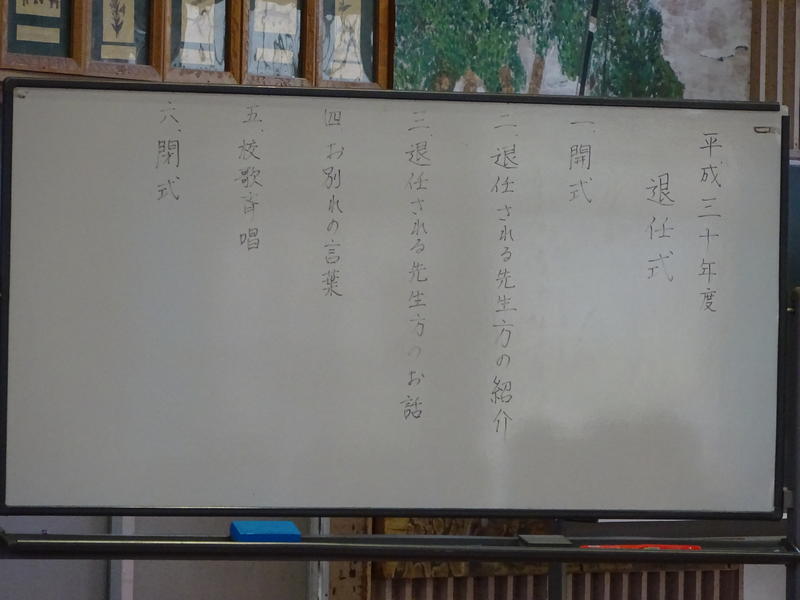 平成三十年度
退任式
一、開式
二、退任される先生方の紹介
三、退任される先生方のお話
四、お別れの言葉
五、校歌斉唱
六、閉式